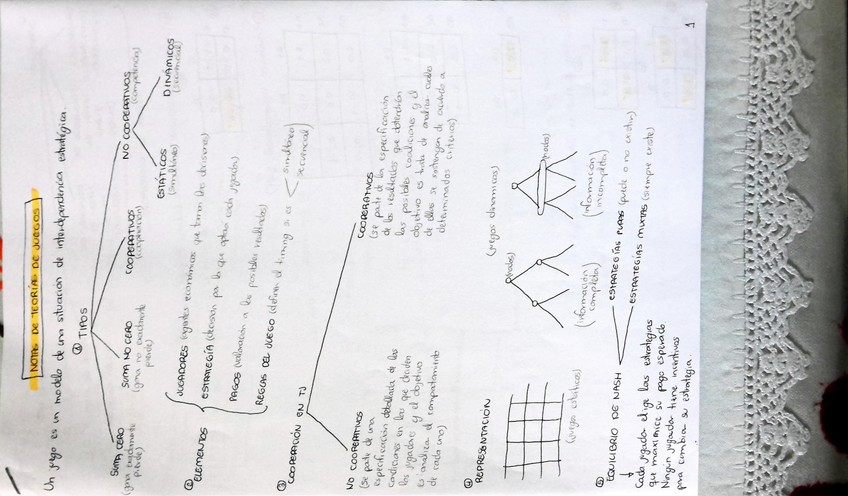 NOTAS DE TEORÍA DE JUEGOS
Un juego es un modelo de una situación de interdependencia estratégica.
① TIPOS
SUMA CERO
(gana exactamente
pierde)
SUMA NO CERO
(gana no exactamente
pierde)
COOPERATIVOS
(cooperación)
NO COOPERATIVOS
(competencia)
ESTÁTICOS
(simultáneo)
DINÁMICOS
(secuencial)
② ELEMENTOS
JUGADORES (agentes económicos que toman las decisiones)
ESTRATEGIA (decisión por la que optan cada jugador)
PAGOS (valoración a los posibles resultados)
REGLAS DEL JUEGO (definen el timing si es
simultáneo
secuencial)
③ COOPERACIÓN EN TJ
NO COOPERATIVOS
(se parte de una
especificación detallada de las
condiciones en las que deciden
los jugadores y el objetivo
es analizar el comportamiento
de cada uno)
COOPERATIVOS
(se parte de la especificación
de los resultados que obtendrían
las posibles coaliciones y el
objetivo es trata de analizar cuáles
de ellas se sostengan de acuerdo a
determinados criterios)
④ REPRESENTACIÓN
(juegos estáticos)
(juegos dinámicos)
(nodos)
(información
completa)
(nodos)
(información
incompleta)
⑤ EQUILIBRIO DE NASH
ESTRATEGIAS PURAS (puede o no existir)
ESTRATEGIAS MIXTAS (siempre existe)
Cada jugador elige las estrategias
que maximice su pago esperado
Ningún jugador tiene incentivos
para cambiar su estrategia.
1